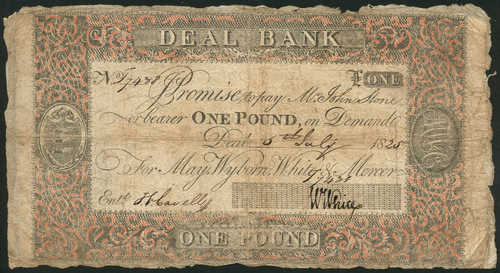 DEAL BANK
No. 17438 £ONE
I Promise to pay Mr. John Stone
or bearer ONE POUND, on Demand
Deal 5th July 1825
For May, Wyborn, White & Mercer
17438
Entd. W White
ONE POUND